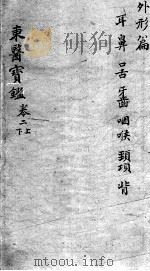 外形篇
耳 鼻 口舌 牙齒 咽喉 頸項 背
東醫寶鑑 卷二上下